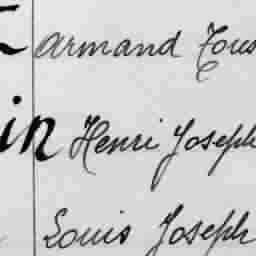 Armand Tous
in Henri Joseph
Louis Joseph